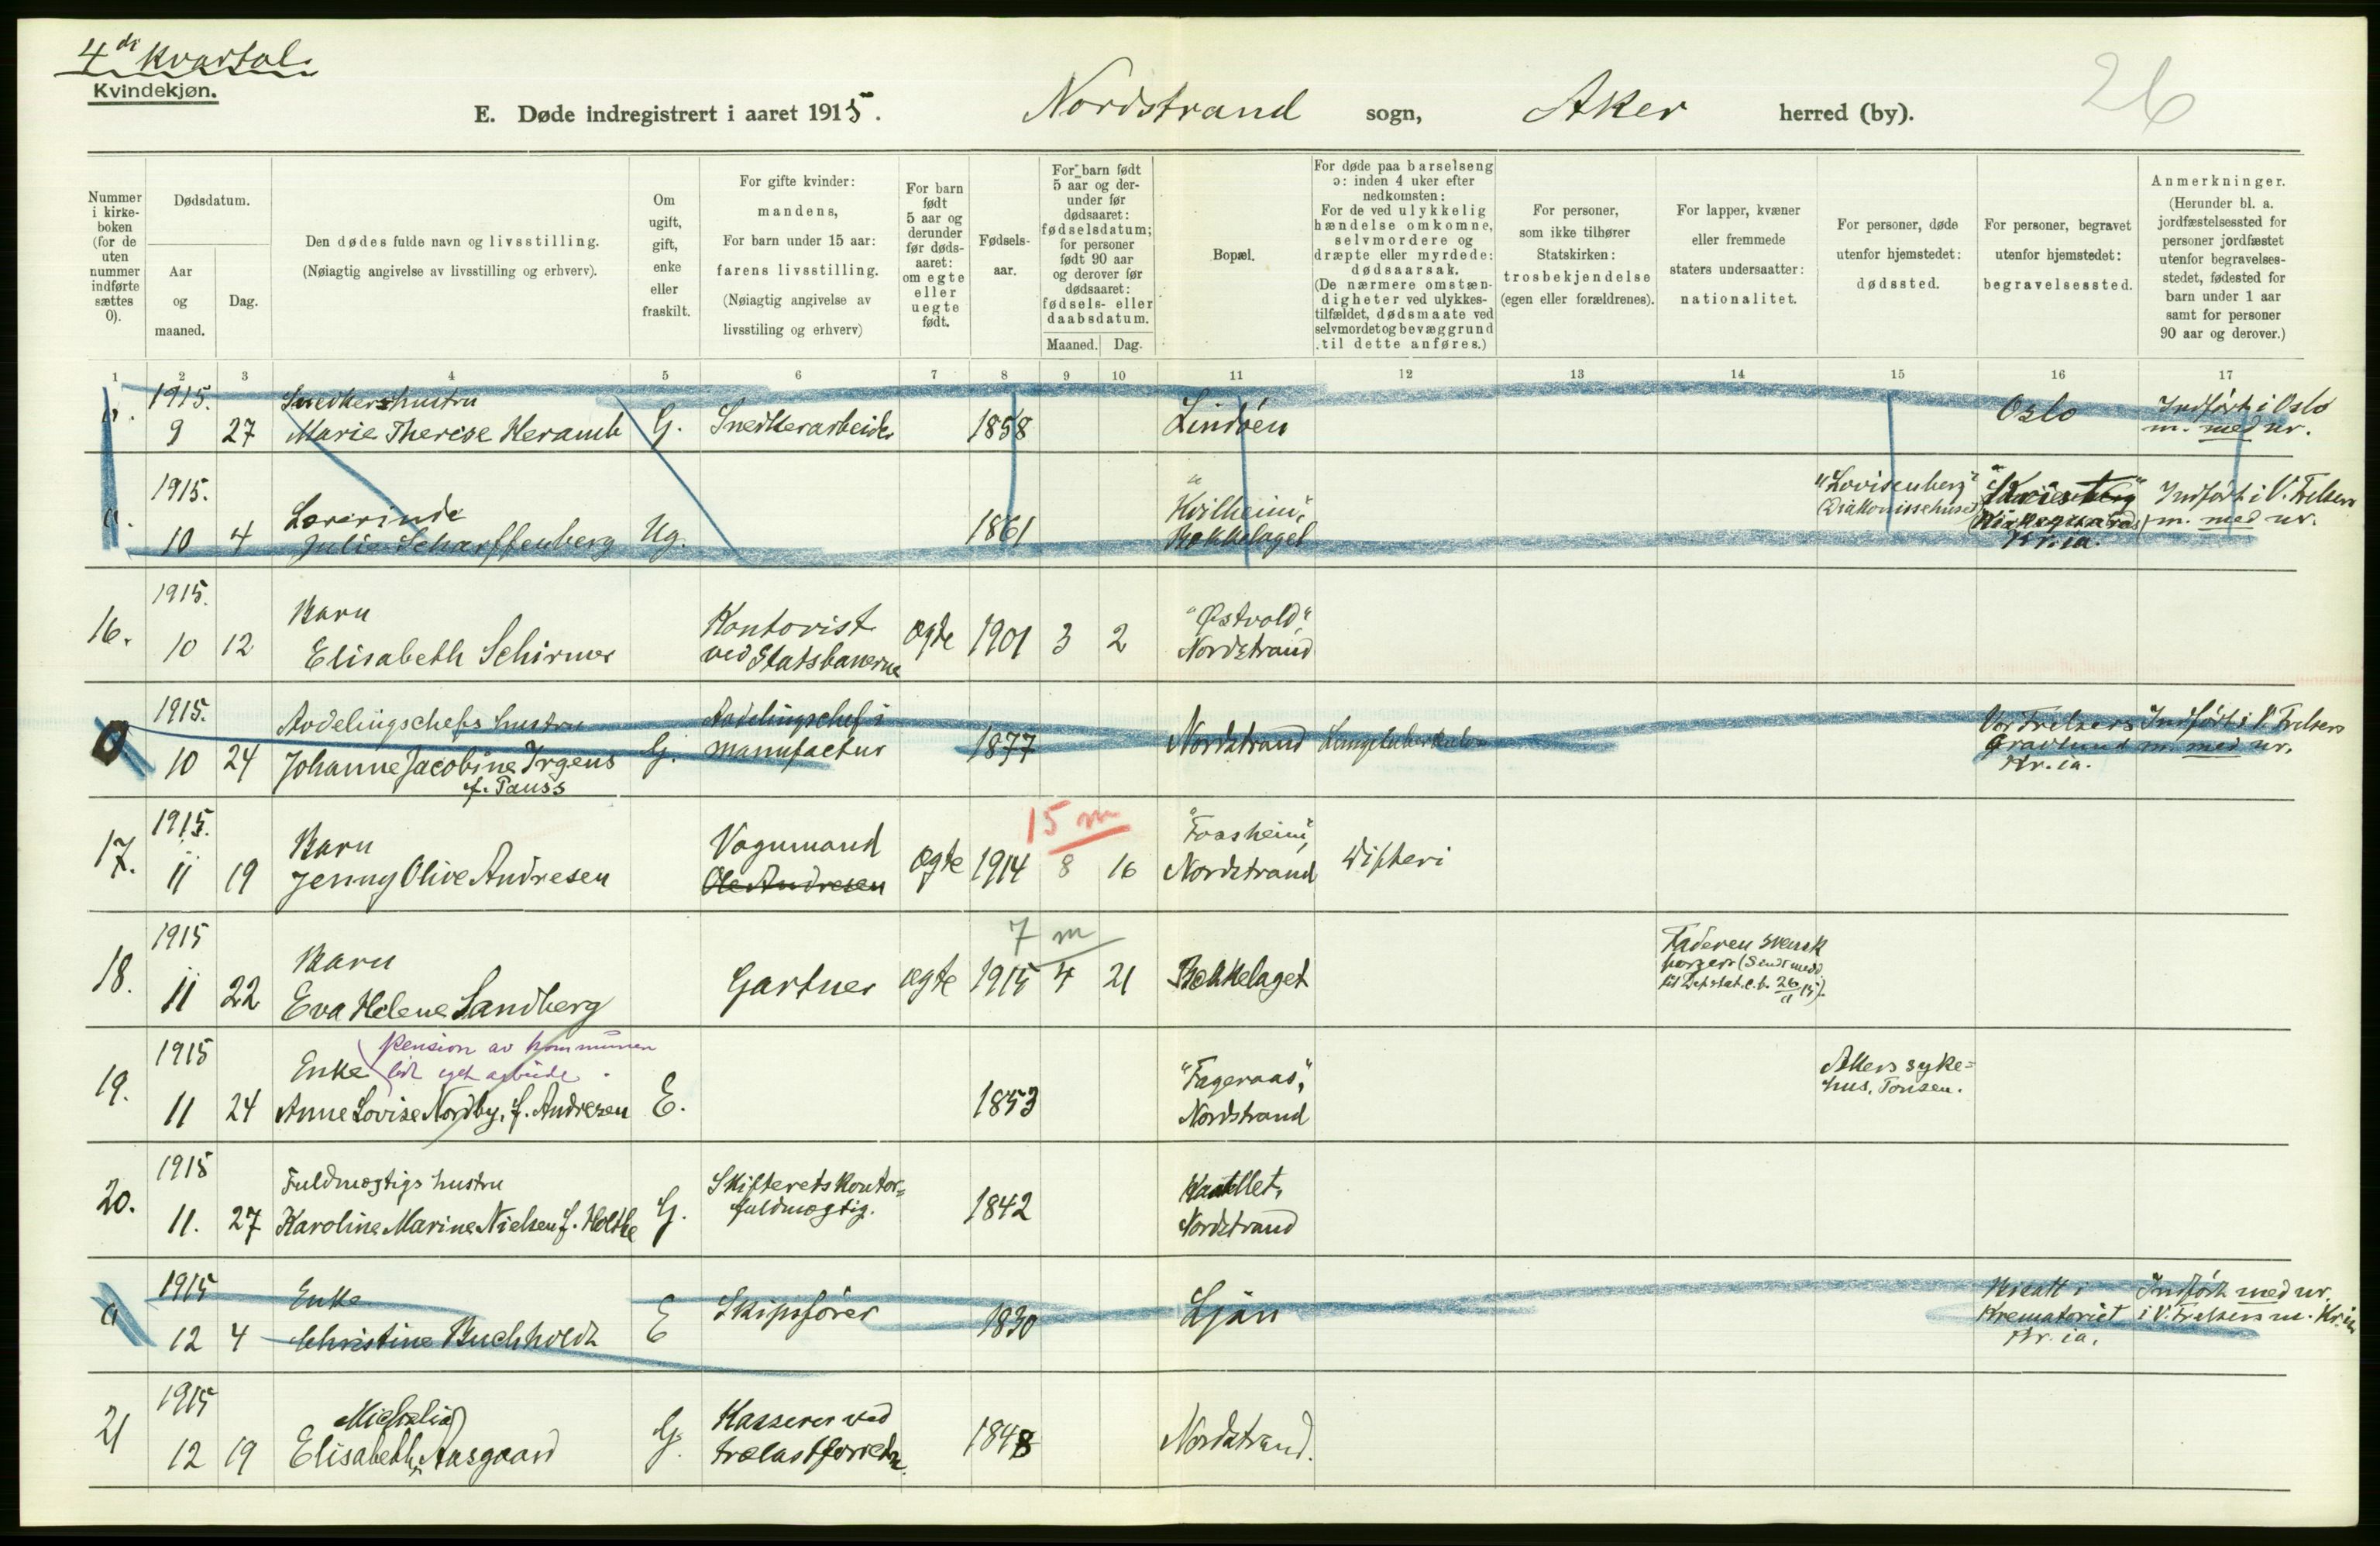 4de Kvartal.
Kvindekjøn.
E. Døde indregistrert i aaret 1915. Nordstrand sogn, Aker herred (by).
26
Nummer i kirke-boken (for de uten nummer indførte sættes 0).
Dødsdatum.
Aar og maaned.
Dag.
Den dødes fulde navn og livsstilling.
(Nøiagtig angivelse av livsstilling og erhverv).
Om ugift, gift, enke eller fraskilt.
For gifte kvinder: mandens,
For barn under 15 aar: farens livsstilling.
(Nøiagtig angivelse av livsstiling og erhverv)
For barn født 5 aar og derunder før døds-aaret: om egte eller uegte født.
Fødsels-aar.
For barn født 5 aar og der-under før dødsaaret: fødselsdatum; for personer født 90 aar og derover før dødsaaret: fødsels- eller daabsdatum.
Maaned. Dag.
Bopæl.
For døde paa barselseng ɔ: inden 4 uker efter nedkomsten:
For de ved ulykkelig hændelse omkomne, selvmordere og dræpte eller myrdede: dødsaarsak.
(De nærmere omstæn-digheter ved ulykkes-tilfældet, dødsmaate ved selvmordet og bevæggrund til dette anføres.)
For personer, som ikke tilhører Statskirken: trosbekjendelse (egen eller forældrenes).
For lapper, kvæner eller fremmede staters undersaatter: nationalitet.
For personer, døde utenfor hjemstedet: dødssted.
For personer, begravet utenfor hjemstedet: begravelsessted.
Anmerkninger.
(Herunder bl. a. jordfæstelsessted for personer jordfæstet utenfor begravelses-stedet, fødested for barn under 1 aar samt for personer 90 aar og derover.)
1 2 3 4 5 6 7 8 9 10 11 12 13 14 15 16 17
1915. Snedkershustru
0. 9 27 Marie Therese Heramb G. Snedkerarbeider 1858 Lindøen Oslo Indført i Oslo m. med nr.
1915. Lærerinde
0. 10 4 Julie Scharffenberg Ug. 1861 "Kvilheim", Bækkelaget "Lovisenberg" Diakonissehuset Kr.ia. Indført i V. Frelsers m. med nr.
1915. Barn
16. 10 12 Elisabeth Schirmer Kontorist ved Statsbanerne ægte 1901 3 2 "Østvold", Nordstrand
1915. Avdelingschefs hustru
0 10 24 Johanne Jacobine Irgens f. Pauss G. Avdelingschef i manufactur 1877 Nordstrand Lungetuberkulose Vor Frelsers Gravlund Kr.ia. Indført i V. Frelsers m. med nr.
15 m
1915. Barn
17. 11 19 Jenny Olive Andresen Vognmand Ole Andresen ægte 1914 8 16 "Foasheim", Nordstrand Difteri
7 m
1915 Barn
18. 11 22 Eva Helene Sandberg Gartner ægte 1915 4 21 Bækkelaget Faderen svensk borger (Sendt medd. til Det stat. c.b. 26/11 15).
1915 Enke Pension av kommunen lidt eget arbeide.
19. 11 24 Anne Lovise Nordby, f. Andresen E. 1853 "Fageraas", Nordstrand Akers syke=hus, Tonsen.
1915 Fuldmægtigs hustru
20. 11. 27 Karoline Marine Nielsen f. Holthe G. Skifteretskontor=fuldmægtig. 1842 Nordstrand
1915 Enke
0 12 4 Christine Buchholdt E Skipsfører 1830 Ljan Bisatt i Krematoriet Kr.ia. Indført med nr. i V. Frelsers m. Kr.ia
1915
21 12 19 Elisabeth Aasgaard G. Kasserer ved trælastforretn. 1848 Nordstrand.